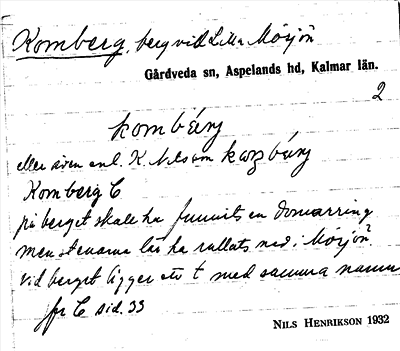 Komberg, berg vid Lilla Mörsjön
Gårdveda sn, Aspelands hd, Kalmar län.
2
kombärj
eller även enl. K. Nilsson
Komberg C
på berget skall ha funnits en domarring
men stenarna lär ha rullats ned i Mörsjön
vid berget ligger ett t med samma namn
jfr C sid. 33
NILS HENRIKSON 1932